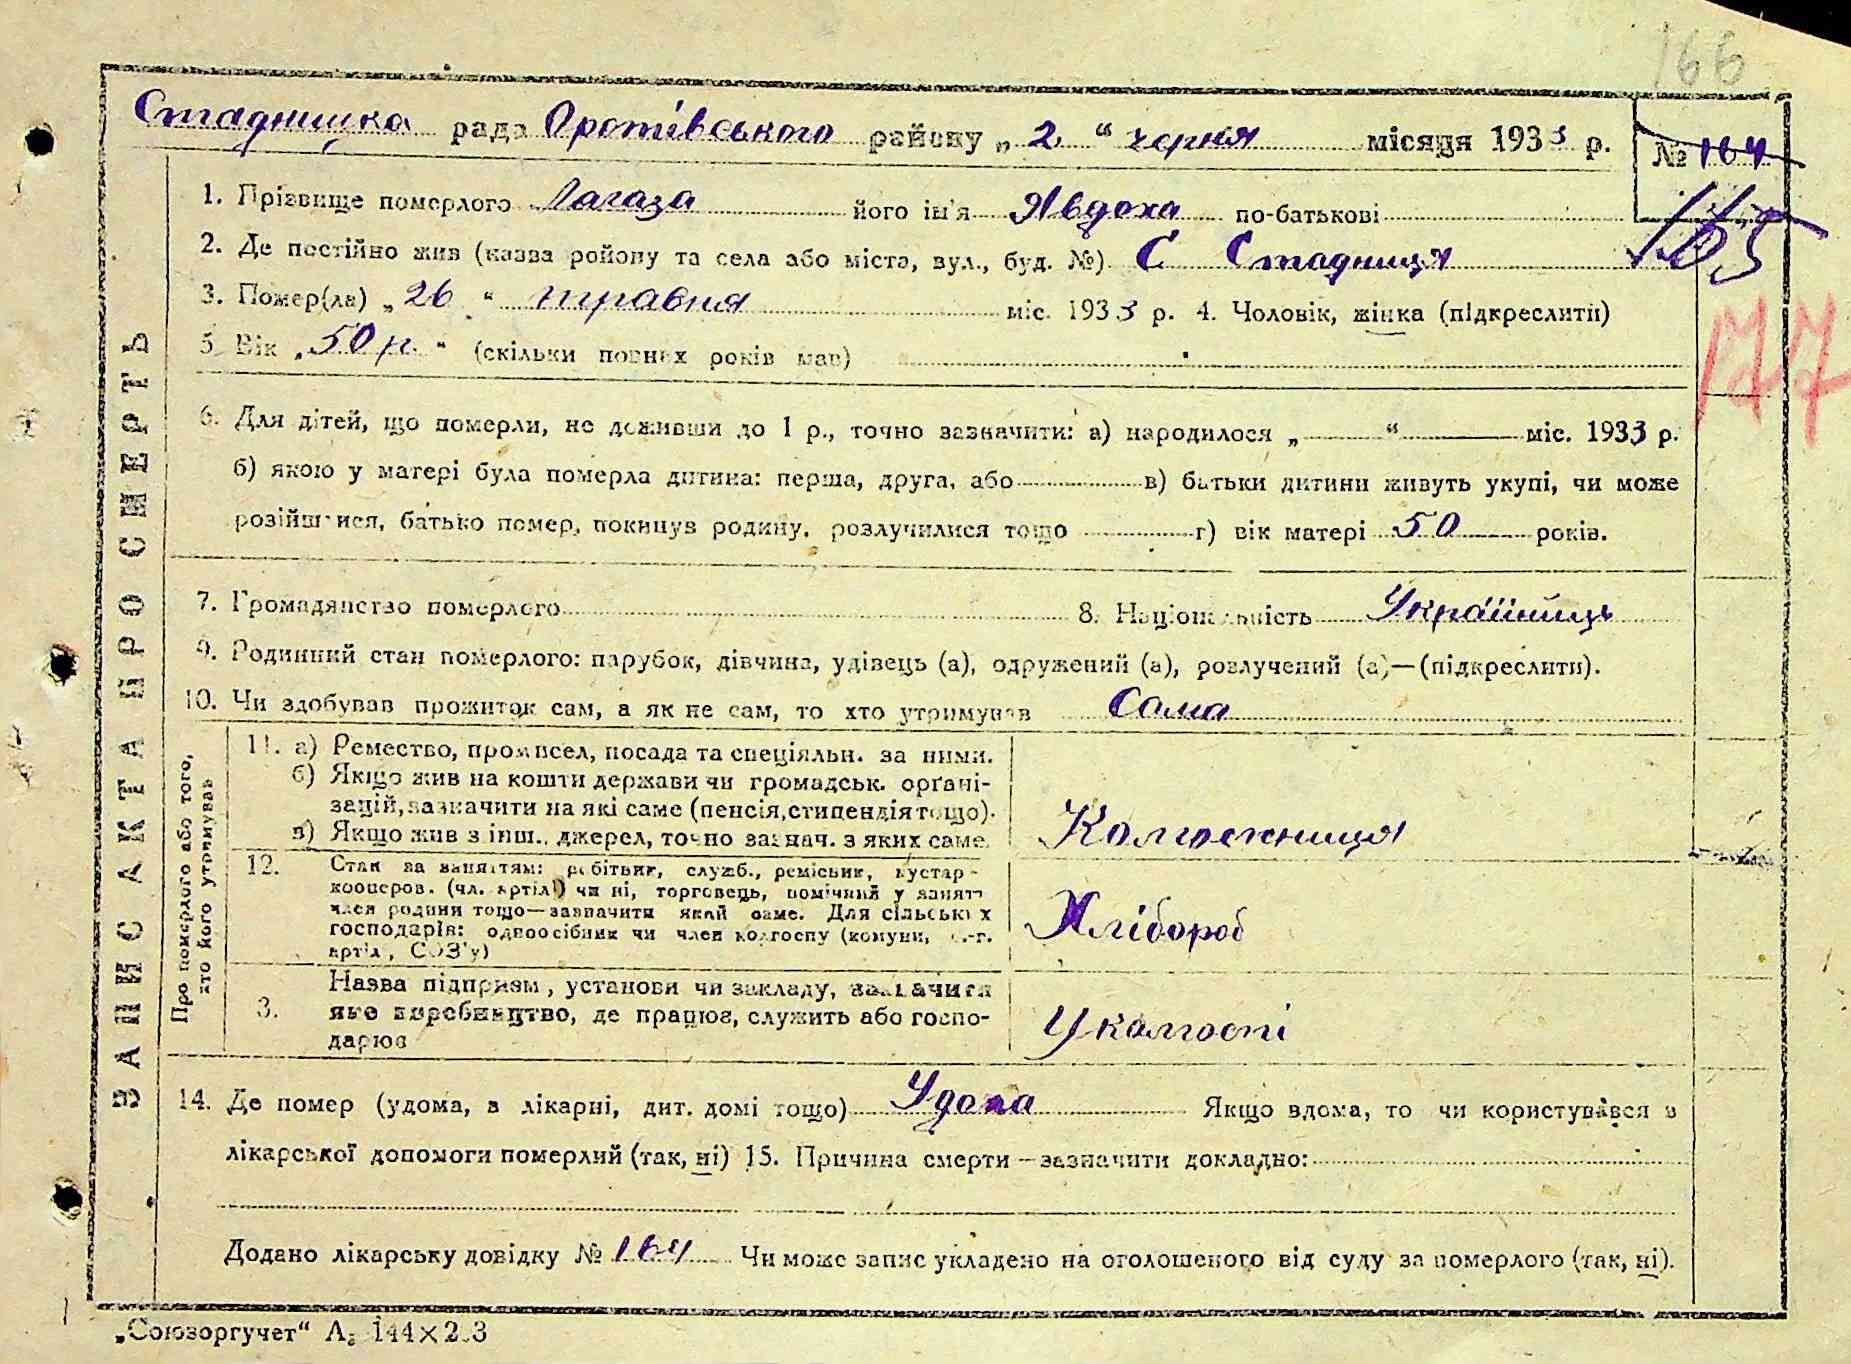 166
Стадницка рада Оратівського району „2“ червня місяця 1933 р.
№ 164
165
1. Прізвище померлого Лагаза його ім'я Явдоха по-батькові
2. Де постійно жив (назва ройону та села або міста, вул., буд. №) С Стадниця
3. Помер(ла) „26“ травня міс. 1933 р. 4. Чоловік, жінка (підкреслити)
177
5. Вік „50 р.“ (скільки повних років мав)
6. Для дітей, що померли, не доживши до 1 р., точно зазначити: а) народилося „ “ міс. 1933 р.
б) якою у матері була померла дитина: перша, друга, або в) батьки дитини живуть укупі, чи може
розійшлися, батько помер, покинув родину, розлучилися тощо г) вік матері 50 років.
7. Громадянство померлого 8. Національність Україниць
9. Родинний стан померлого: парубок, дівчина, удівець (а), одружений (а), розлучений (а)—(підкреслити).
10. Чи здобував прожиток сам, а як не сам, то хто утримував Сама
ЗАПИС АКТА ПРО СМЕРТЬ
Про померлого або того, хто його утримував
11. а) Ремество, промисел, посада та спеціяльн. за ними.
б) Якщо жив на кошти держави чи громадськ. орґані-
зацій, зазначити на які саме (пенсія, стипендія тощо).
в) Якщо жив з інш. джерел, точно зазнач. з яких саме.
Колгосжниця
12. Стан за заняттям: робітник, служб., реміспик, кустар-
кооперов. (чл. артіл) чи ні, торговець, помічний у занят-
члея родини тощо—зазначити який саме. Для сільських
господарів: одноосібник чи член колгоспу (комуни, с.-г.
артіл, СОЗ'у)
Хлібороб
3. Назва підприєм, установи чи закладу, зазначити
яке виробництво, де працює, служить або госпо-
дарює
У колгоспі
14. Де помер (удома, в лікарні, дит. домі тощо) Удома Якщо вдома, то чи користувався з
лікарської допомоги померлий (так, ні) 15. Причина смерти—зазначити докладно:
Додано лікарську довідку № 164 Чи може запис укладено на оголошеного від суду за померлого (так, ні).
„Союзоргучет“ А₅ 144×2.3